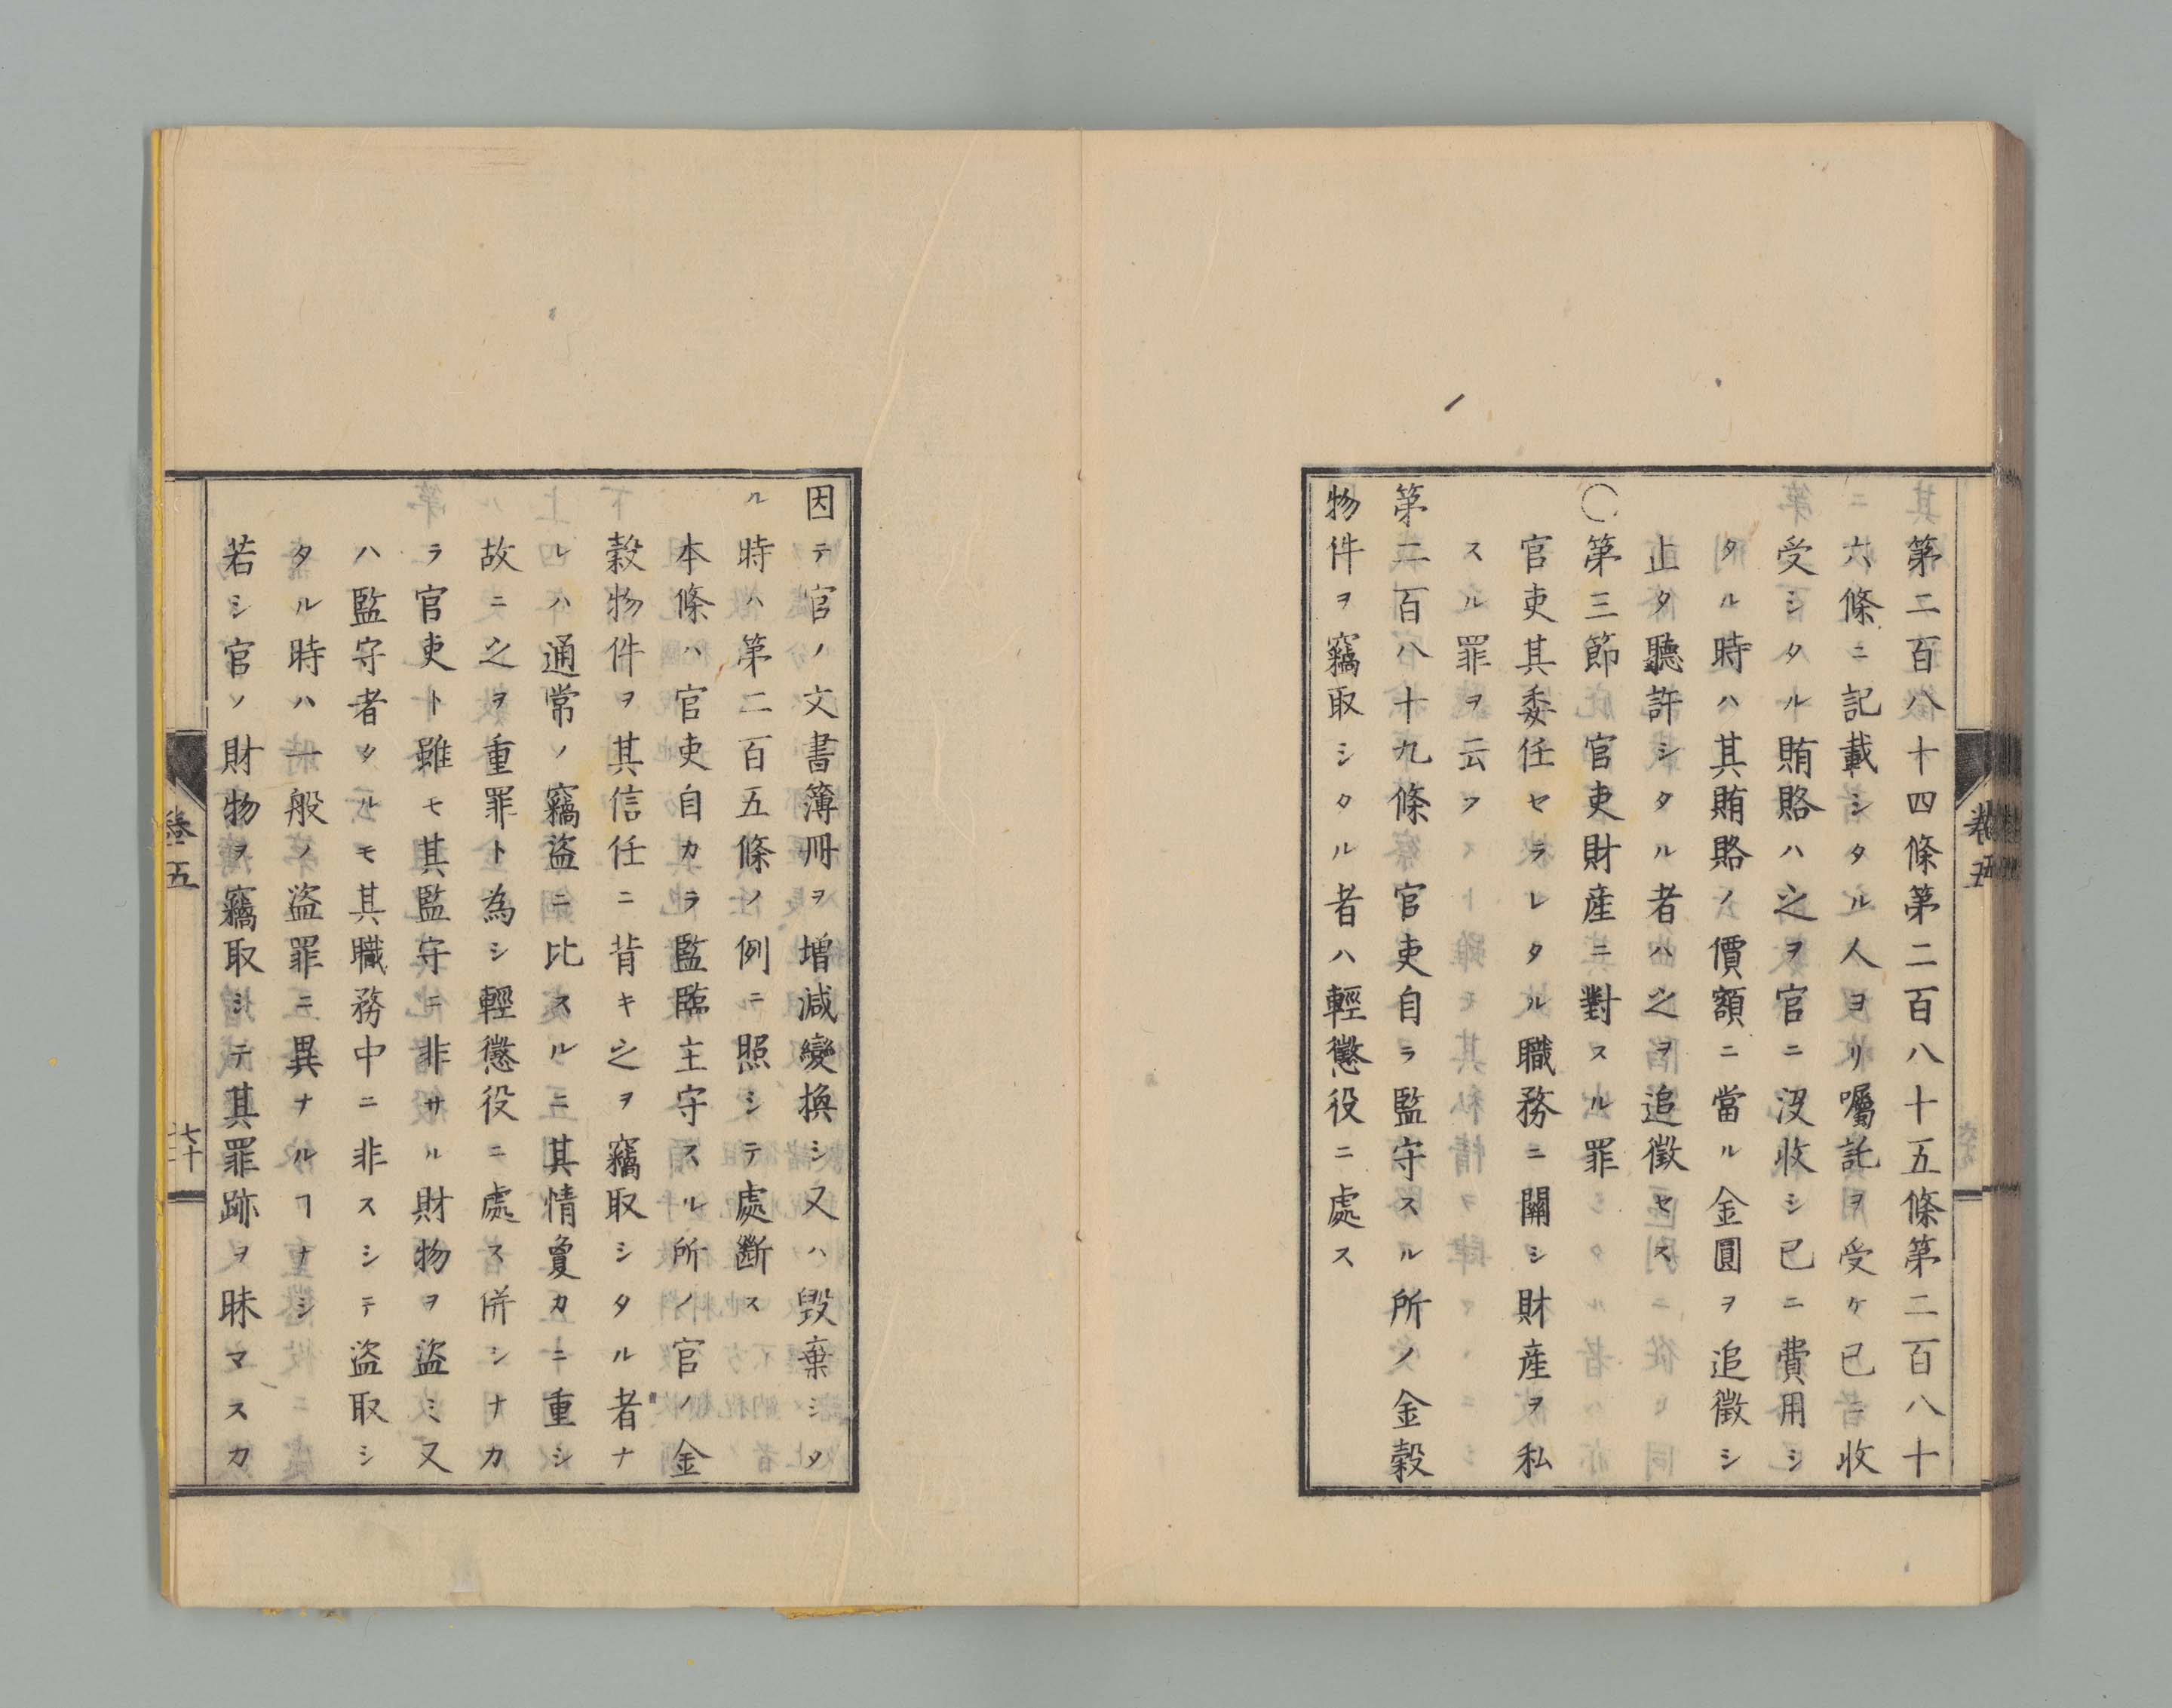 第二百八十四條第二百八十五條第二百八十
六條ニ記載シタル人ヨリ囑託ヲ受ケ已ニ收
受シタル賄賂ハ之ヲ官ニ沒收シ已ニ費用シ
タル時ハ其賄賂ノ價額ニ當ル金圓ヲ追徵シ
止タ聽許シタル者ハ之ヲ追徵セス
〇第三節官吏財產ニ對スル罪
官吏其委任セラレタル職務ニ關シ財產ヲ私
スル罪ヲ云フ
第二百八十九條官吏自ラ監守スル所ノ金穀
物件ヲ竊取シタル者ハ輕懲役ニ處ス
卷五
因テ官ノ文書簿冊ヲ増減變換シ又ハ毀棄シタ
ル時ハ第二百五條ノ例ニ照シテ處斷ス
本條ハ官吏自カラ監臨主守スル所ノ官ノ金
穀物件ヲ其信任ニ背キ之ヲ竊取シタル者ナ
レハ通常ノ竊盜ニ比スルニ其情敻カニ重シ
故ニ之ヲ重罪ト為シ輕懲役ニ處ス併シナカ
ラ官吏ト雖モ其監守ニ非サル財物ヲ盜ミ又
ハ監守者タルモ其職務中ニ非スシテ盜取シ
タル時ハ一般ノ盜罪ニ異ナルヿナシ
若シ官ノ財物ヲ竊取シテ其罪跡ヲ昧マスカ
卷五